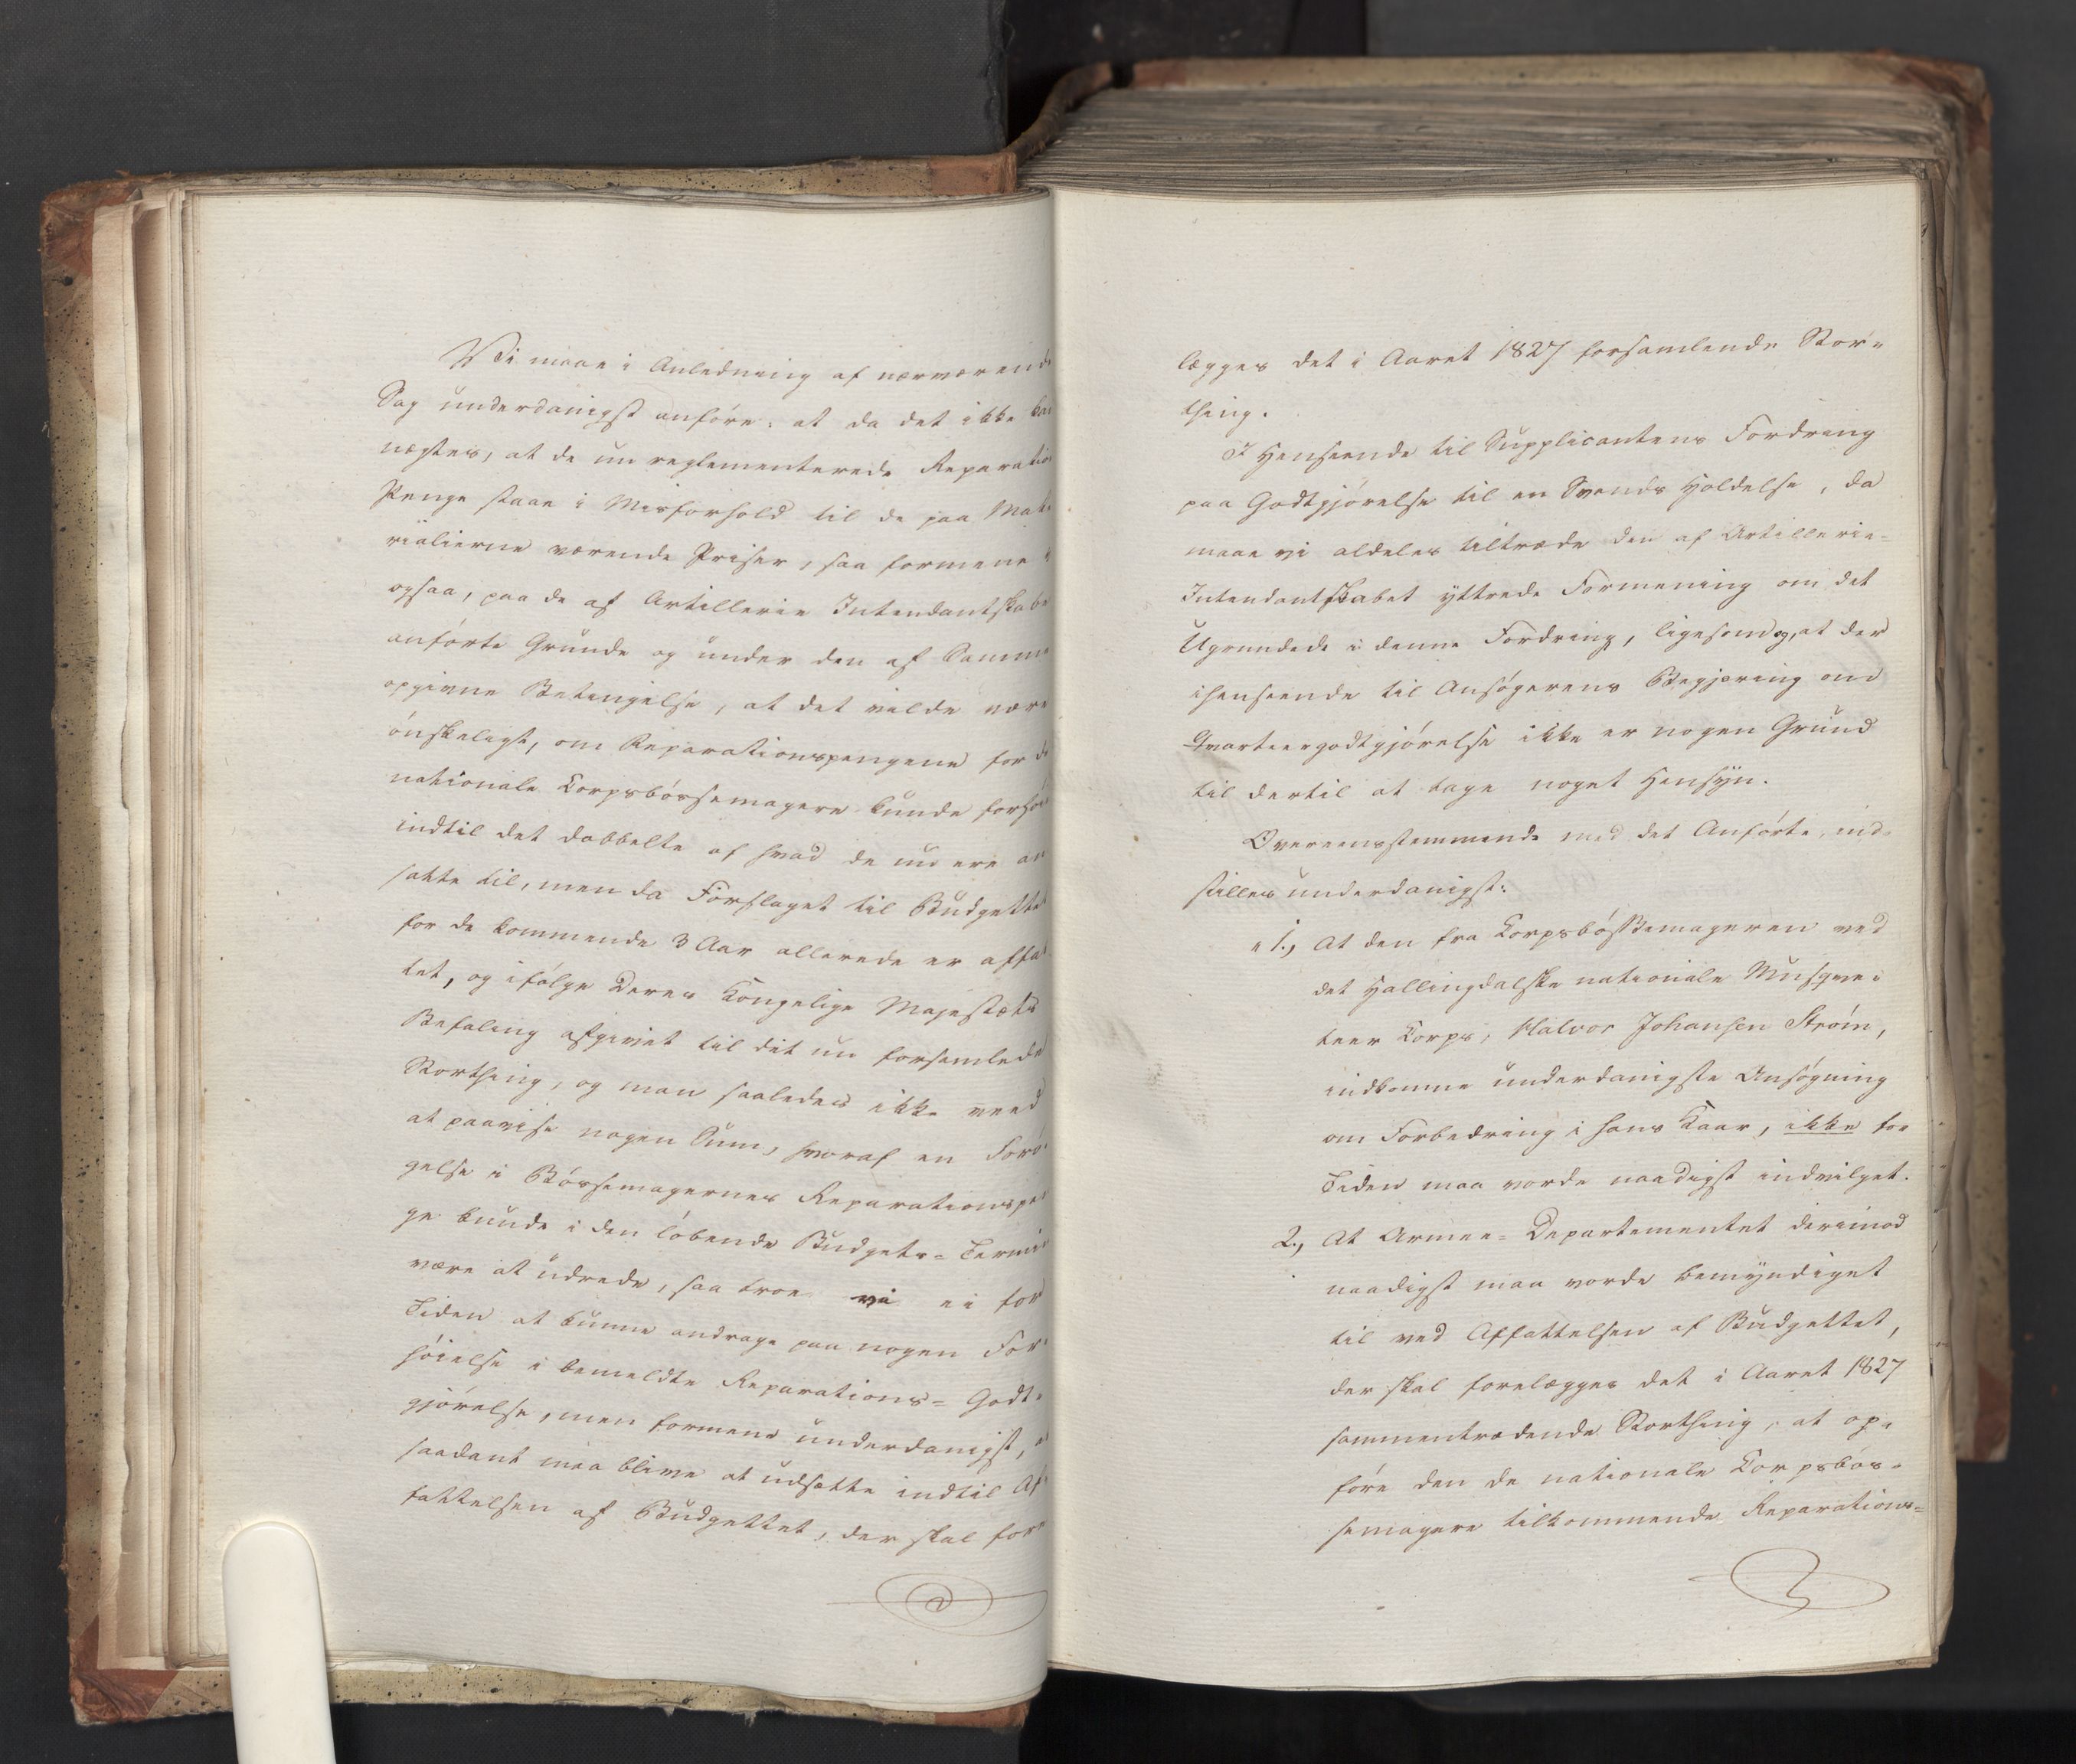 Vi maae i Anledning af nærværende
Sag underdanigst anføre: at da det ikke kan
nægtes, at de nu reglementerede Reparations
Penge staae i Misforhold til de paa Mate
rialierne værende Priser, saa formene vi
ogsaa, paa de af Artillerie Intendantskabet
anførte Grunde og under den af Samme
opgivne Betingelse, at det vilde være
ønskeligt, om Reparationspengene for de
nationale Corpsbøssemagere kunde forhøies
indtil det dobbelte af hvad de nu ere an
satte til, men da Forslaget til Budgettet
for de kommende 3 Aar allerede er affat
tet, og ifølge Deres Kongelige Majestæts
Befaling afgivet til det nu forsamlede
Storthing, og man saaledes ikke veed
at paavise nogen Sum, hvoraf en Forø-
gelse i Bøssemagernes Reparationspen
ge kunde i den løbende Budgets-Termin
være at udrede, saa troe vi ei for
Tiden at kunne andrage paa nogen For-
høielse i bemeldte Reparations-Godt-
gjørelse, men formene underdanigst, at
saadant maa blive at udsætte indtil Af-
fattelsen af Budgettet, der skal fore
lægges det i Aaret 1827 forsamlende Stor-
thing.
I Henseende til Supplicantens Fordring
paa Godtgjørelse til en Svends Holdelse, da
maae vi aldeles tiltræde den af Artillerie-
Intendantskabet yttrede Formening om det
Ugrundede i denne Fordring, ligesom og, at der
ihenseende til Ansøgerens Begjæring om
Qvarteergodtgjørelse ikke er nogen Grund
til dertil at tage noget Hensyn.
Overeensstemmende med det Anførte, ind-
stilles underdanigst:
1., At den fra Corpsbøssemageren ved
det Hallingdalske nationale Musque-
teer Corps, Halvor Johansen Strøm,
indkomne underdanigste Ansøgning
om Forbedring i hans Kaar, ikke for
Tiden maa vorde naadigst indvilget.
2., At Armee-Departementet derimod
naadigst maa vorde bemyndiget
til ved Affattelsen af Budgettet,
der skal forelægges det i Aaret 1827
sammentrædende Storthing, at op-
føre den de nationale Corpsbøs-
semagere tilkommende Reparations-